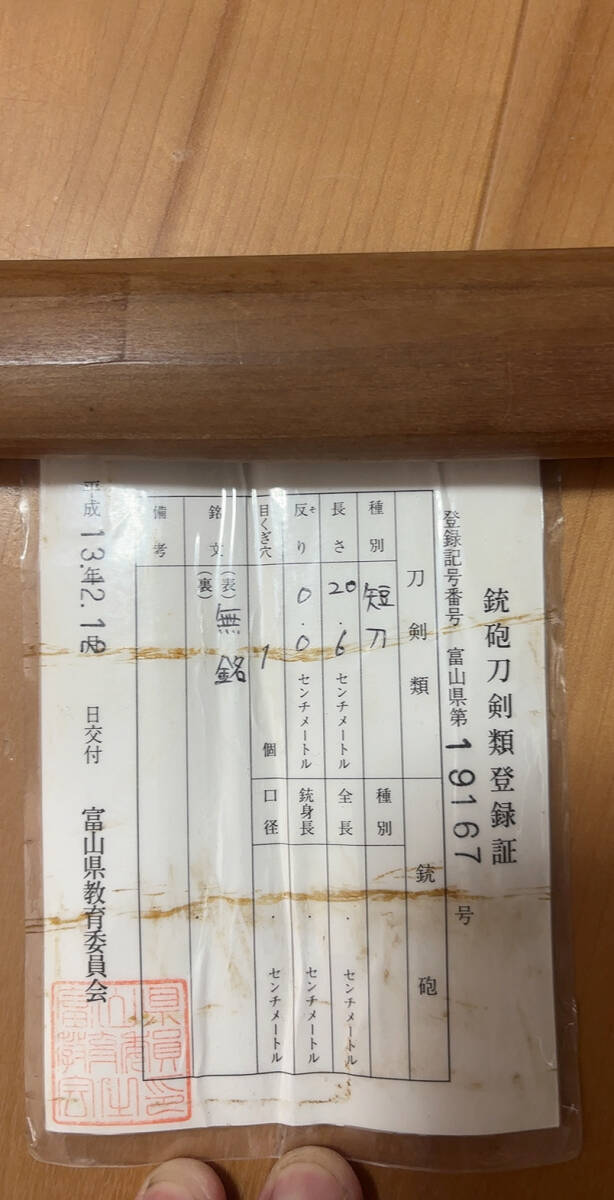 銃砲刀剣類登録証
登録記号番号 富山県第19167号
刀剣類
種別 短刀
長さ 20.6センチメートル
反り(そり) 0.0センチメートル
目くぎ穴 1個
銘文 (表)無銘
(裏)
備考
銃砲
種別
全長 . センチメートル
銃身長 . センチメートル
口径 . センチメートル
平成13.年12.1 日交付
富山県教育委員会